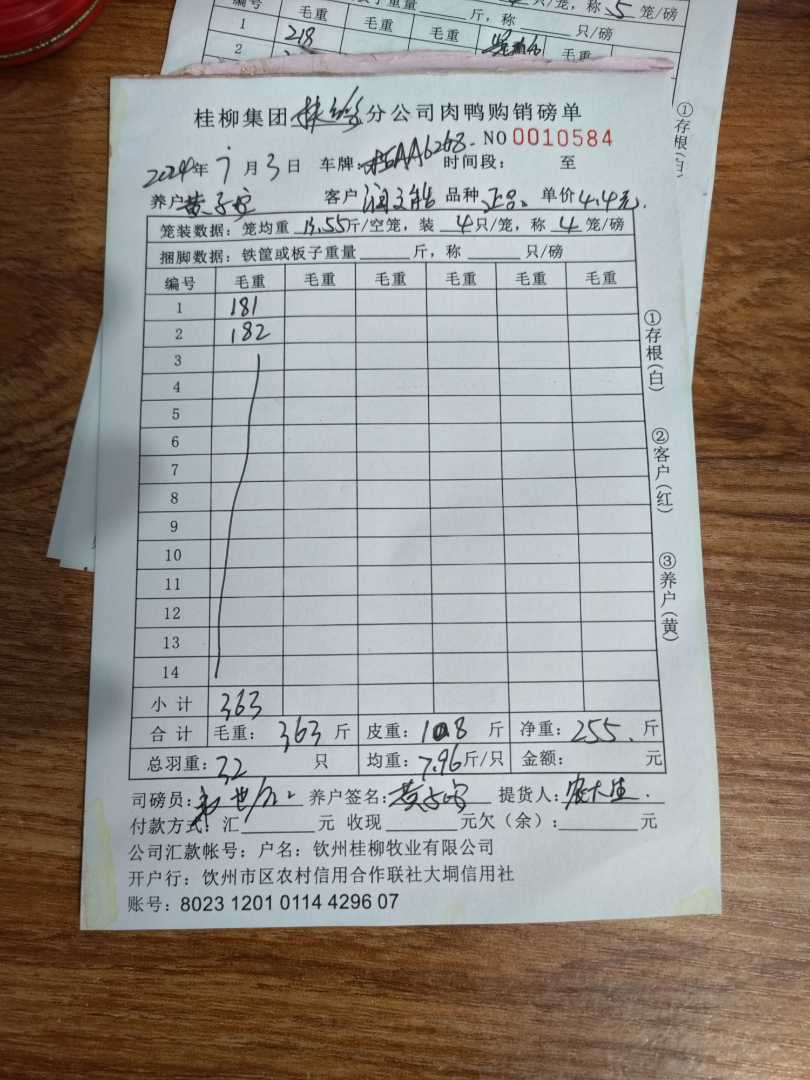 编号 毛重 毛重 毛重 毛重
斤，称 只/磅
只/笼，称 5 笼/磅
1 218
2
①存根(白)
桂柳集团 分公司肉鸭购销磅单
NO 0010584
2024年 7 月 3 日 车牌 AA6268 时间段： 至
养户 黄子 客户 润 品种 正品 单价 4.4元
笼装数据：笼均重 13.55 斤/空笼，装 4 只/笼，称 4 笼/磅
捆脚数据：铁筐或板子重量 斤，称 只/磅
编号 毛重 毛重 毛重 毛重 毛重 毛重
1 181
2 182
3
4
5
6
7
8
9
10
11
12
13
14
小计 363
合计 毛重：363 斤 皮重：108 斤 净重：255 斤
总羽重：32 只 均重：7.96 斤/只 金额： 元
①存根(白)
②客户(红)
③养户(黄)
司磅员： 世 养户签名：黄子 提货人： 大生
付款方式：汇 元 收现 元欠（余）： 元
公司汇款帐号：户名：钦州桂柳牧业有限公司
开户行：饮州市区农村信用合作联社大垌信用社
账号：8023 1201 0114 4296 07